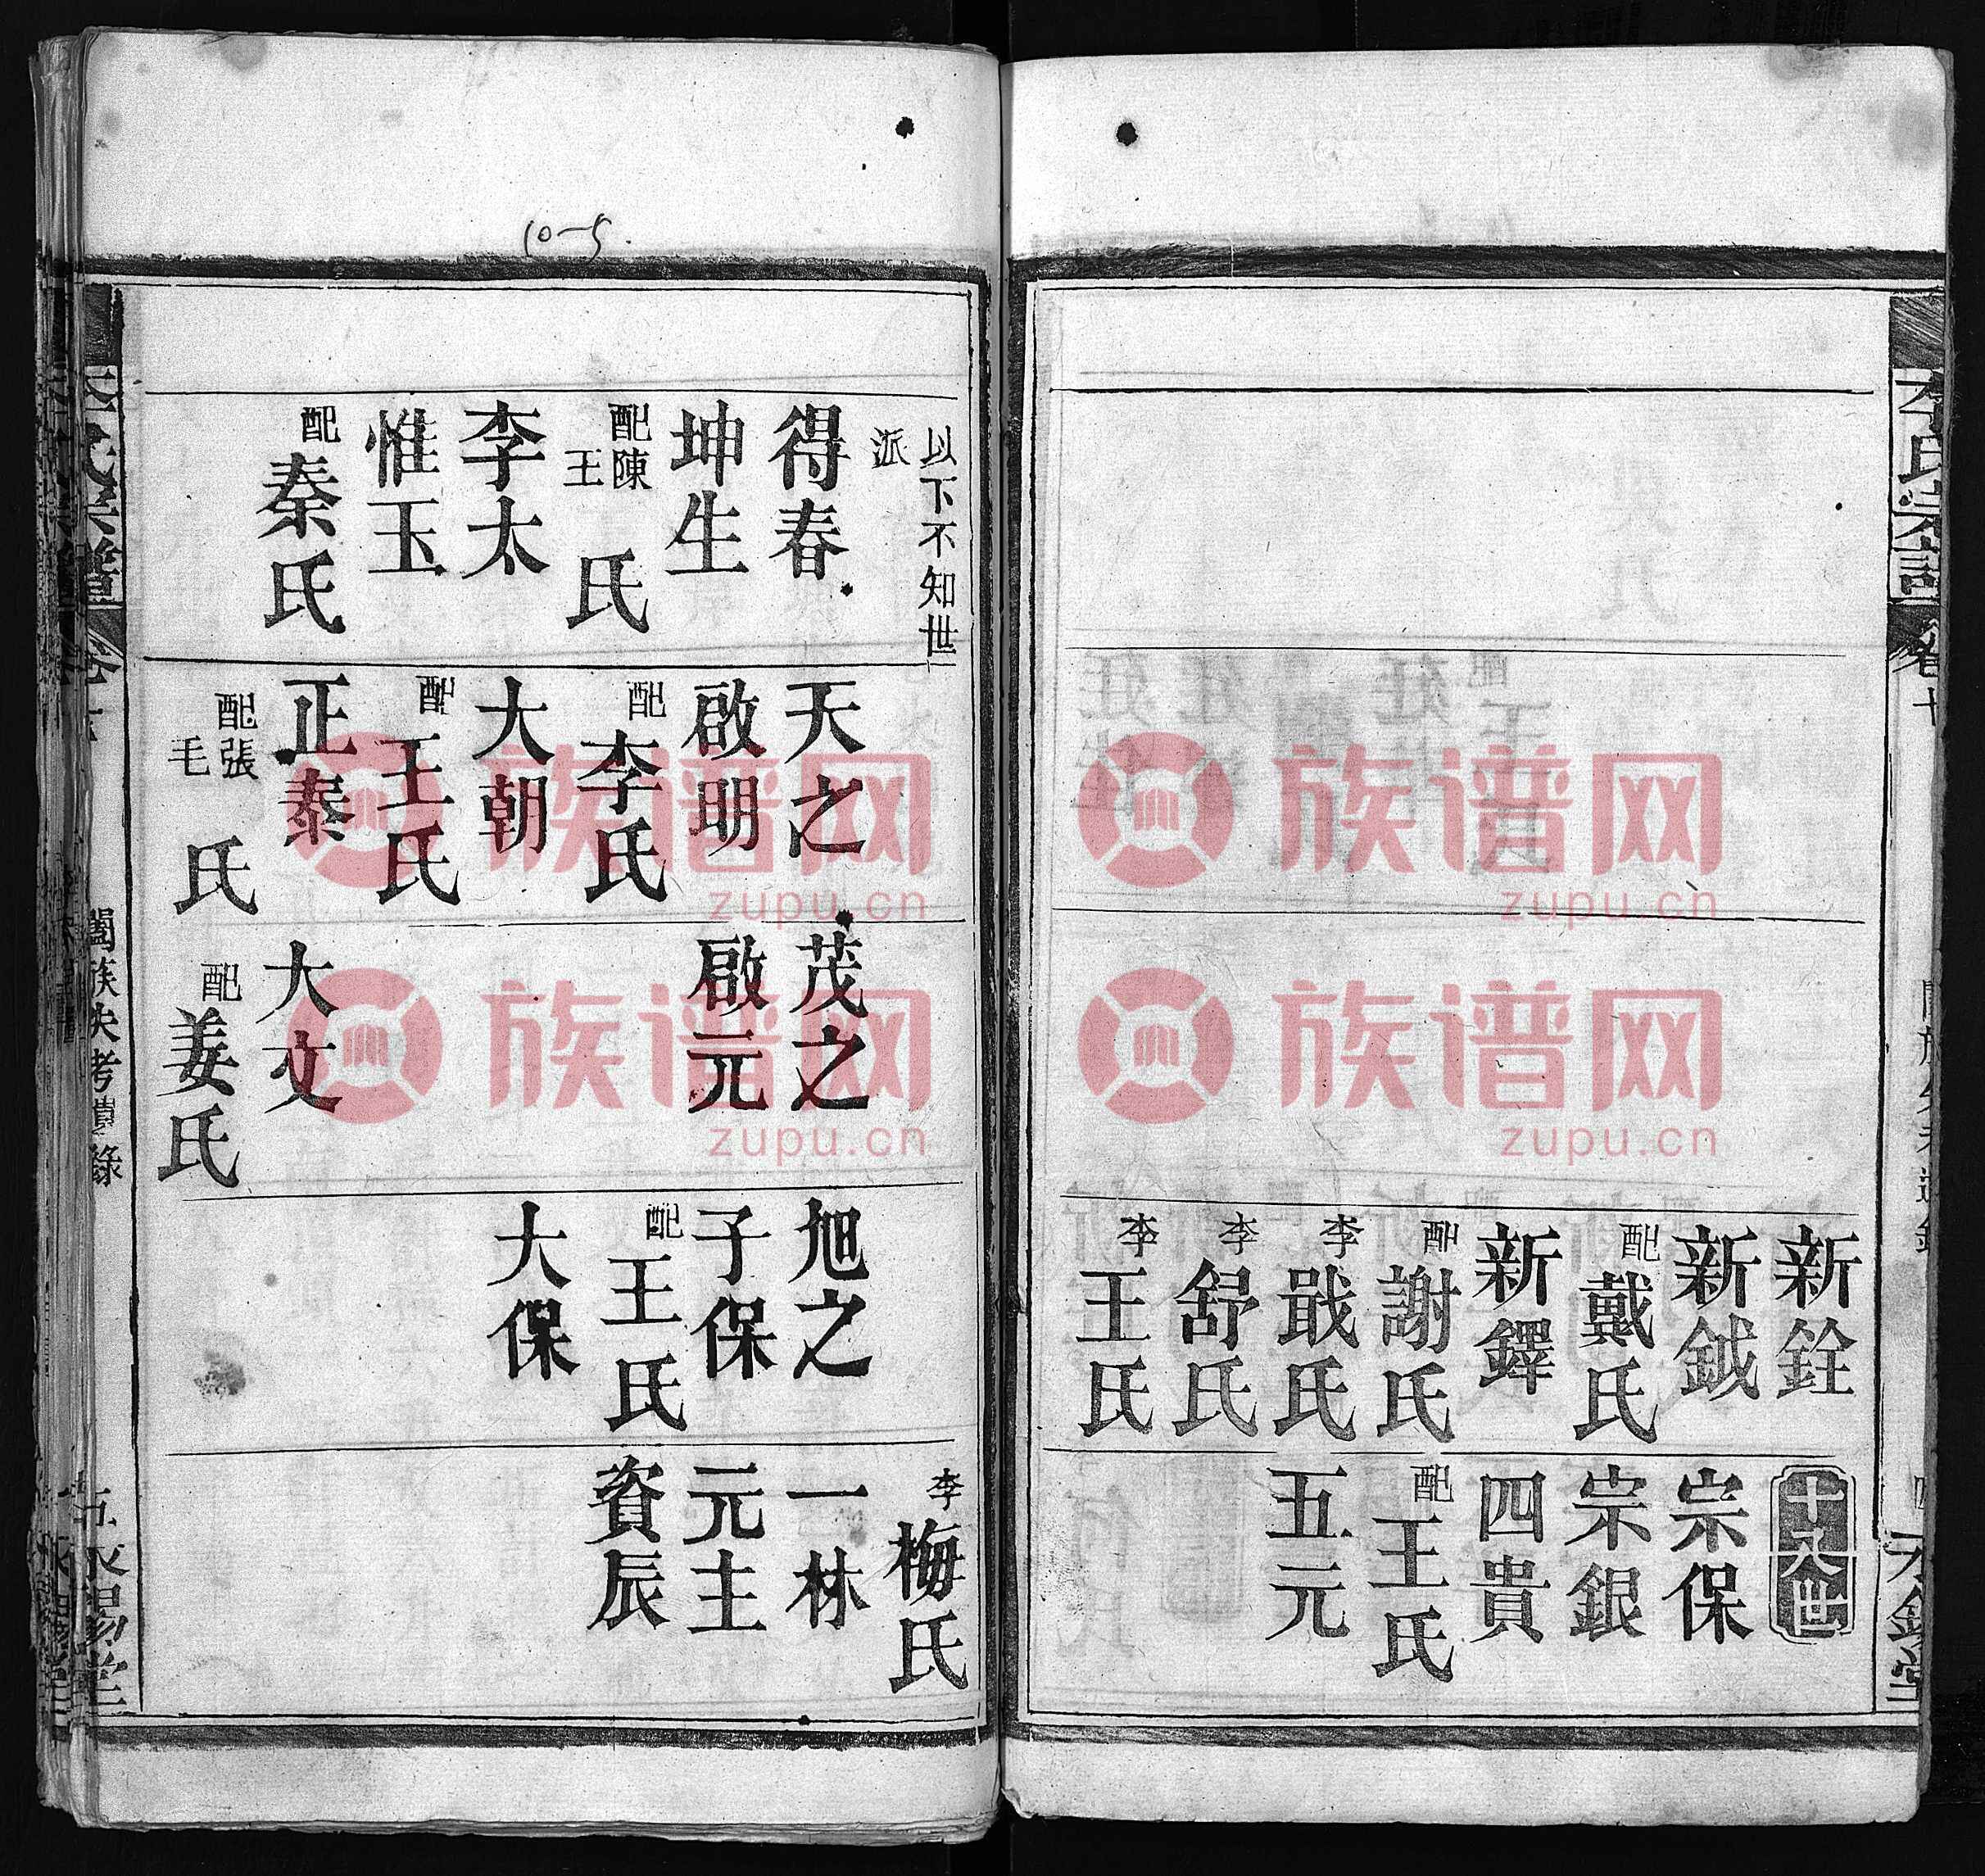 李氏宗譜
卷十
新銓
新鉞
配戴氏
新鐸
配謝氏
李戢氏
李舒氏
李王氏
十八世
宗保
宗銀
四貴
配王氏
五元
10-5.
以下不知世
派
得春
坤生
配陳王氏
李太
惟玉
配秦氏
天之
啟明
配李氏
大朝
配王氏
正泰
配張毛氏
茂之
啟元
大文
配姜氏
旭之
子保
配王氏
大保
李梅氏
一林
元主
資辰
李氏宗譜
闔族失考遺錄
族谱网
zupu.cn
族谱网
zupu.cn
族谱网
zupu.cn
族谱网
zupu.cn